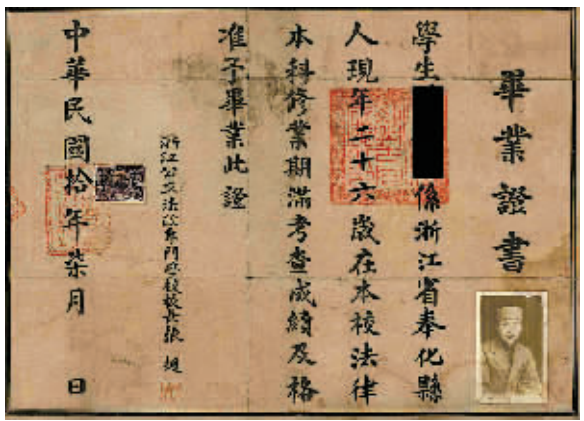 畢業證書
學生 係浙江省奉化縣
人現年二十六歲在本校法律
本科修業期滿考查成績及格
准予畢業此證
浙江公立法政專門學校校長張
中華民國拾年柒月 日